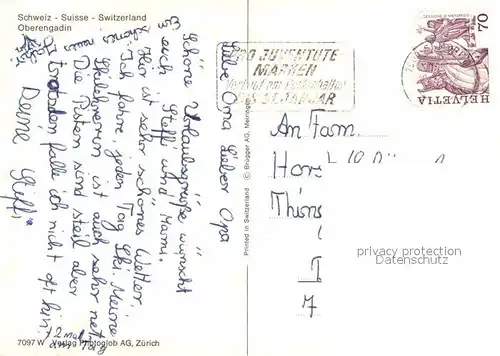 Schweiz - Suisse - Switzerland
Oberengadin
Liebe Oma Lieber Opa
Schöne Urlaubsgrüße wünscht
euch Steffi und Mami.
Hier ist sehr schönes Wetter.
Ich fahre jeden Tag Ski. Meine
Skilehrerin ist auch sehr nett
Die Pisten sind steil aber
Trotzdem falle ich nicht oft hin!
2 mal
am Tag
Deine Steffi
7097 W Verlag Photoglob AG, Zürich
Printed in Switzerland © Brügger AG, Meiringen
PRO JUVENTUTE-
MARKEN
Verkauf am Postschalter
BIS 31. JANUAR
HELVETIA
70
An Fam.
privacy protection
Datenschutz